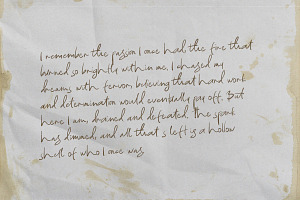 I remember the passion I once had the fire that
burned so brightly within me. I chased my
dreams with fervor, believing that hard work
and determination would eventually pay off. But
here I am, drained and defeated. The spark
has dimmed, and all that s left is a hollow
shell of who I once was.